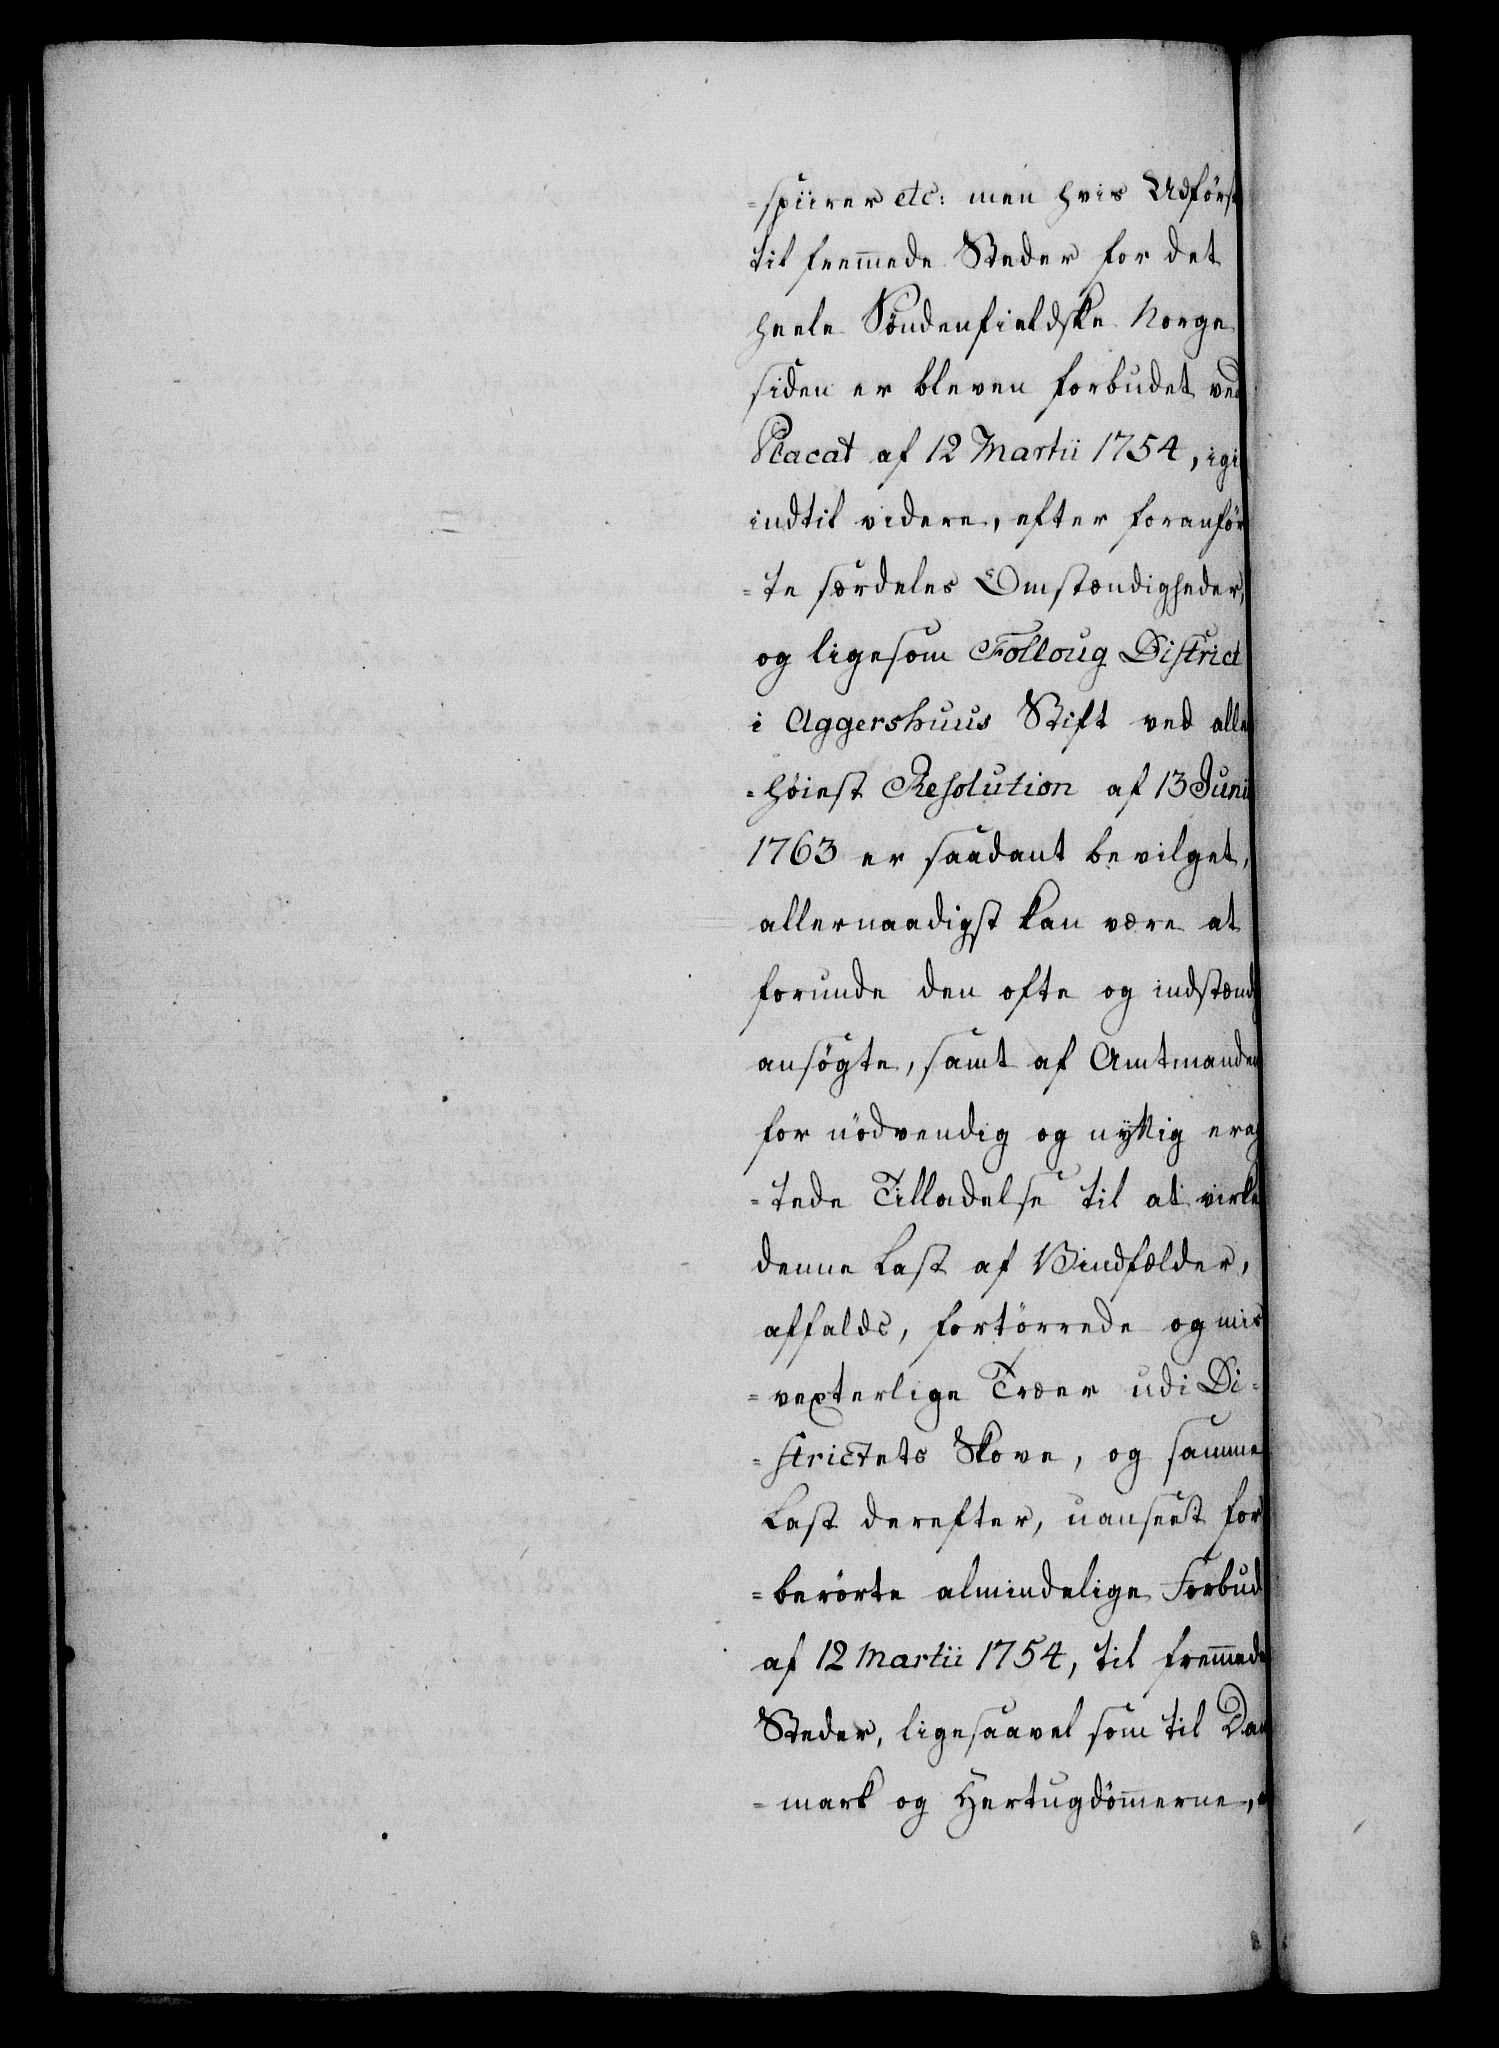 =spiirer etc: men hvis Udførs
til fremmede Steder for det
heele Søndenfieldske Norge
siden er bleven forbudet ved
Placat af 12 Martii 1754, igi
indtil videre, efter foranfør
=te særdeles Omstændigheder,
og ligesom Folloug District
i Aggershuus Stift ved aller
=høiest Resolution af 13 Junii
1763 er saadant bevilget,
allernaadigst kan være at
forunde den ofte og indstænd
ansøgte, samt af Amtmanden
for nödvendig og nyttig erag
=tede Tilladelse til at virke
denne Last af Vindfælder,
affalds, fortørrede og mis
=vexterlige Træer udi Di=
=strictets Skove, og samme
Last derefter, uanseet for
=berørte almindelige Forbud
af 12 Martii 1754, til fremmede
Steder, ligesaavel som til Dan
=mark og Hertugdömmerne,